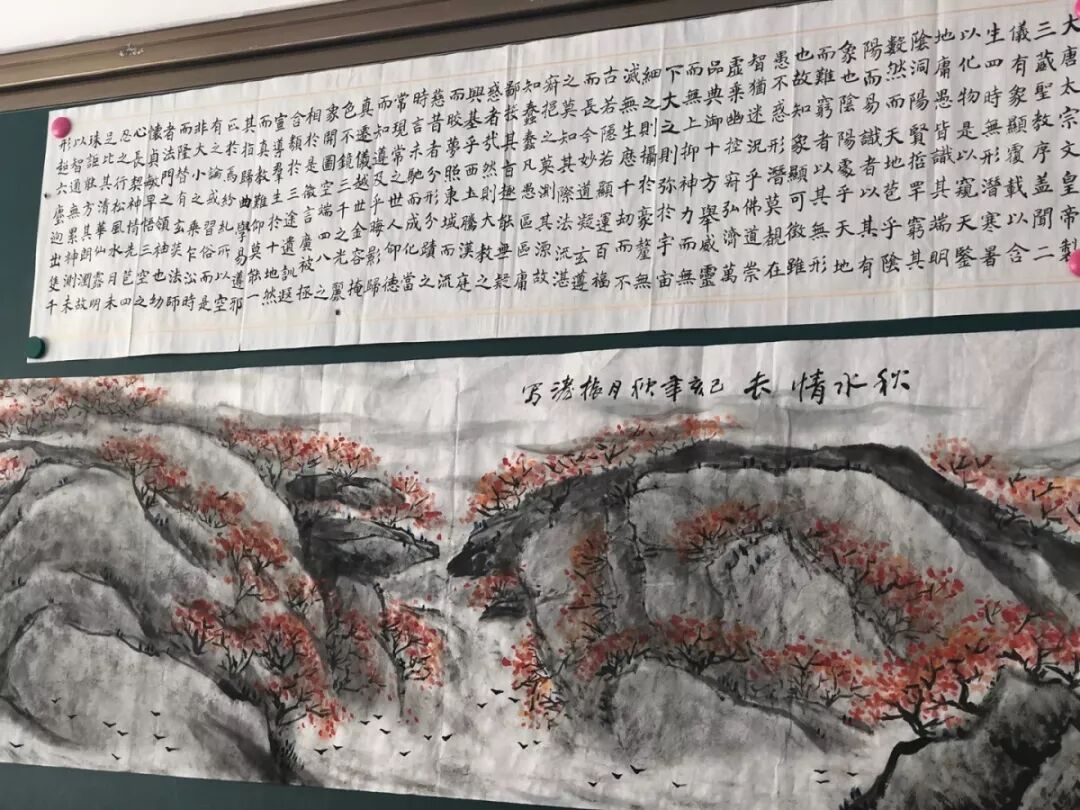 大唐太宗文皇帝製
三藏聖教序蓋聞二
儀有象顯覆載以含
生四時無形潛寒署
以化物是以窺天鑒
地庸愚皆識其端明
陰洞陽賢哲罕窮其
數然而天地苞乎陰
陽而易識者以其有
象也陰陽處乎天地
而難窮者以其無形
也故知象顯可徵雖
愚不惑形潛莫覩在
智猶迷況乎佛道崇
虛乘幽控寂弘濟萬
品典御十方舉威靈
而無上抑神力而無
下大之則弥於宇宙
細之則攝於豪釐無
滅無生歷千劫而不
古若隱若顯運百福
而長今妙道凝玄遵
之莫知其際法流湛
寂挹之莫測其源故
知蠢蠢凡愚區區庸
鄙投其旨趣能無疑
惑者哉然則大教之
興基乎西土騰漢庭
而皎夢照東域而流
慈昔者分形分蹟之
時言未馳而成化當
常現常之世人仰德
而知遵及乎晦影歸
真遷儀越世金容掩
色不鏡三千之光麗
象開圖空端四八之
相於是微言廣被拯
含類於三途遺訓遐
宣導群生於十地然
而真教難仰莫能一
其指歸曲學易遵邪
正於焉紛糺所以空
有之論或習俗而是
非大小之乘乍沿時
而隆替有玄奘法師
者法門之領袖也幼
懷貞敏早悟三空之
心長契神情先苞四
忍之行松風水月未
足比其清華仙露明
珠詎能方其朗潤故
以智通無累神測未
形超六塵迥出隻千
秋水情長 己亥年秋月振濤写